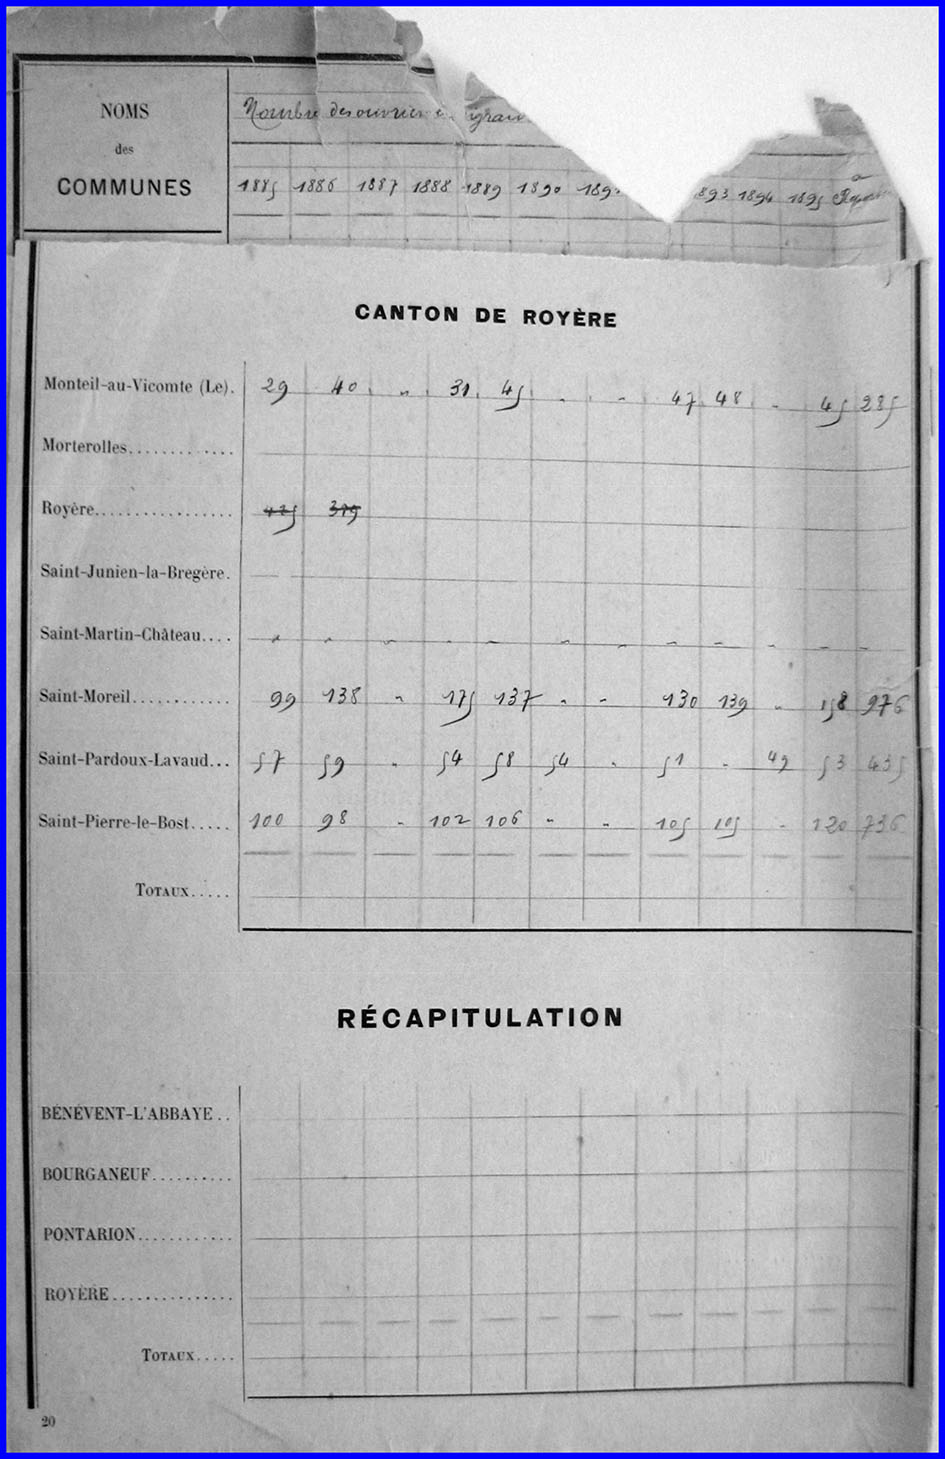 NOMS
des
COMMUNES
Nombre des ouvriers
1885 1886 1887 1888 1889 1890 189 893 1894 1895
CANTON DE ROYÈRE
Monteil-au-Vicomte (Le). 29 40 " 31 45 " " 47 48 " 45 285
Morterolles............
Royère................. 425 379
Saint-Junien-la-Bregère.
Saint-Martin-Château.... " " " " " " " " " " " "
Saint-Moreil............ 99 138 " 175 137 " " 130 139 " 158 976
Saint-Pardoux-Lavaud... 57 59 " 54 58 54 " 51 " 49 53 435
Saint-Pierre-le-Bost..... 100 98 " 102 106 " " 105 105 " 120 736
TOTAUX.....
RÉCAPITULATION
BÉNÉVENT-L'ABBAYE..
BOURGANEUF..........
PONTARION............
ROYÈRE...............
TOTAUX.....
20